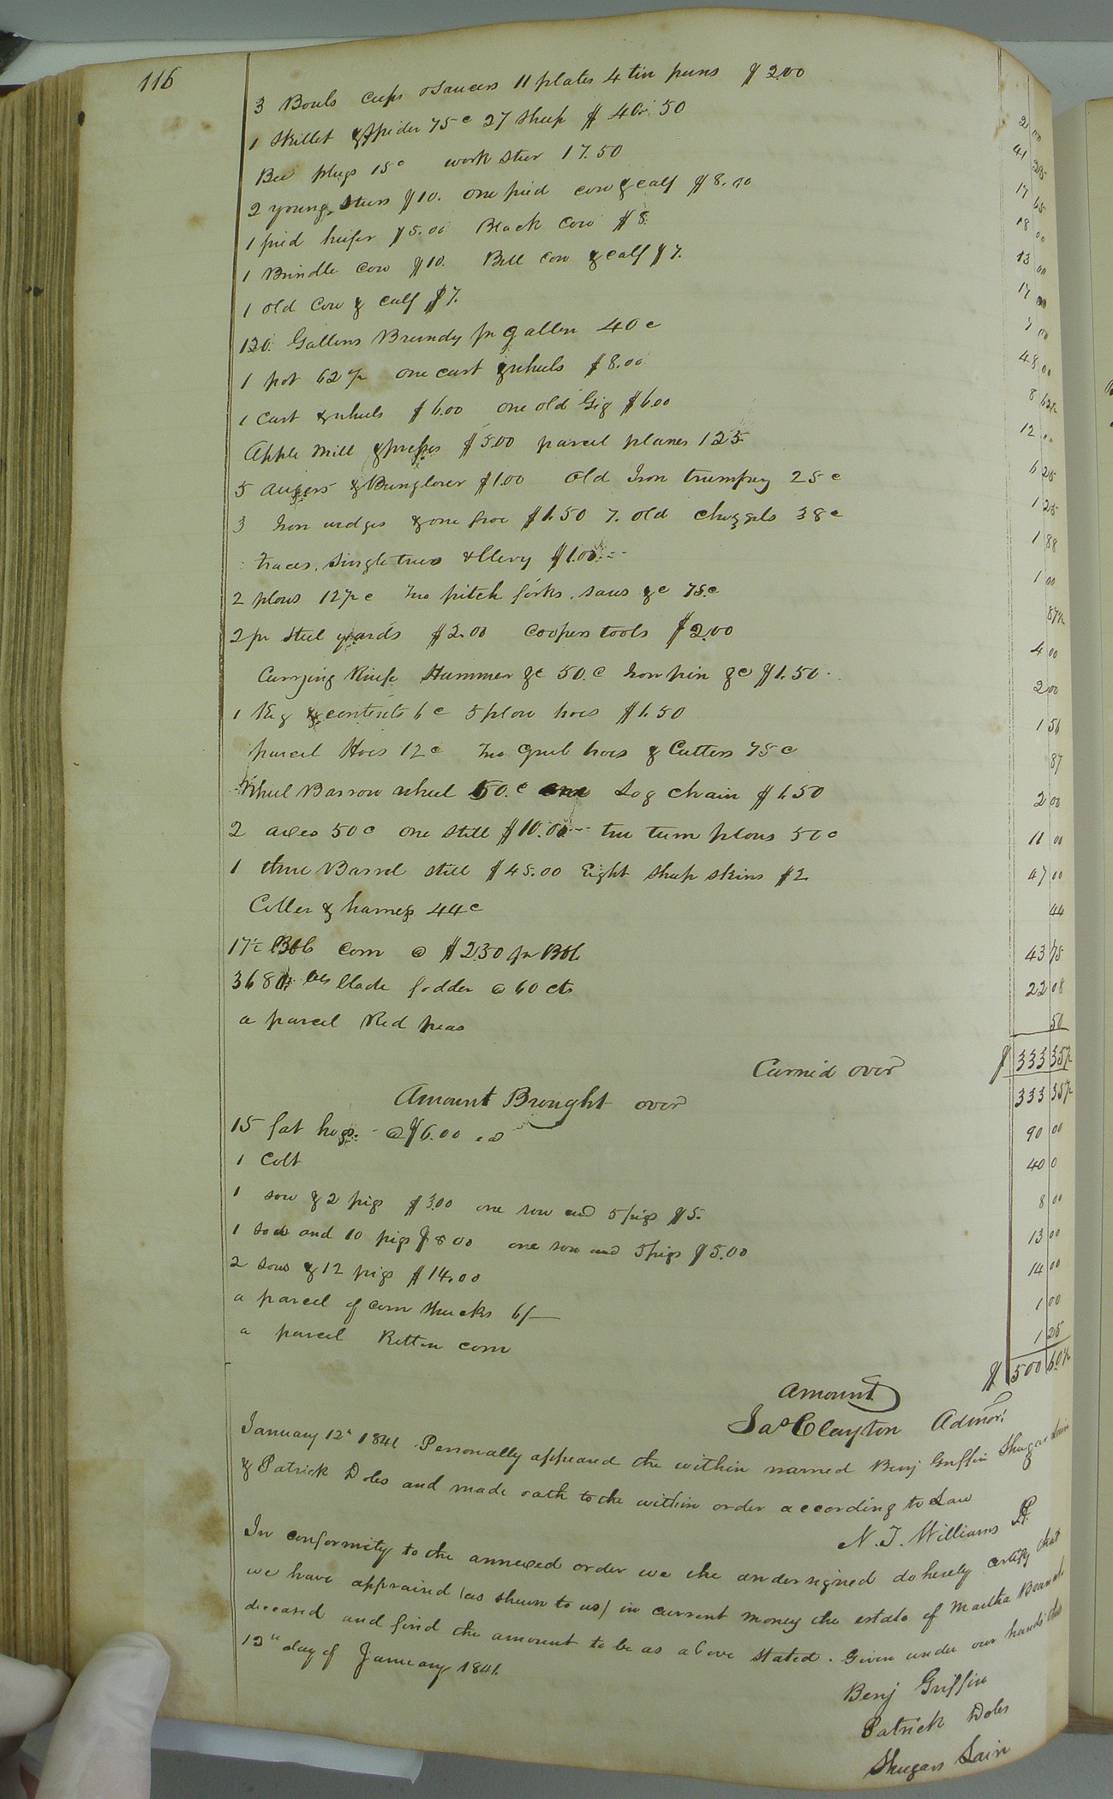 116
3 Bouls Cups & Saucers 11 plates 4 tin puns $2.00 2 00
1 Skillet & Spider 75c 27 Sheep $40.50 41 25
Bee plugs 15c work steer 17.50 17 65
2 young Steers $10. one pied cow & calf $8.00 18 00
1 pied heifer $5.00 Black Cow $8 13 00
1 Brindle Cow $10. Bell Cow & calf $7. 17 00
1 old Cow & calf $7. 7 00
120 Gallons Brandy pr gallon 40c 48.00
1 pot 62½ one cart & wheels $8.00 8 62½
1 Cart & wheels $6.00 one old Gig $6.00 12 00
Apple mill & presses $5.00 parcel planes 125 6 25
5 augers & Bunglorer $1.00 old Iron trumpry 25c 1 25
3 Iron wedges & one froe $1.50 7. old chizzels 38c 1 88
traces, singletrees & Clevy $1.00 1 00
2 plows 12½c Two pitch forks, saws &c 75.c 87½
2 pr Steel yards $2.00 Coopers tools $2.00 4 00
Currying Knife Hammer &c 50.c Iron pin &c $1.50 2 00
1 Keg & contents 6c 5 plow hoes $1.50 1 56
parcel Hoes 12c Two grub hoes & Cutters 75c 87
Wheel Barrow wheel 50.c one Log chain $1.50 2 00
2 axes 50c one Still $10.00 two turn plows 50c 11 00
1 three Barrel still $45.00 Eight Sheep skins $2 47 00
Coller & harness 44c 44
17½ Bbls corn @ $2.50 pr Bbl. 43 75
3680 lbs blade fodder @ 60 cts 22 08
a parcel Red peas 50
Carried over $ 333 35½
Amount Brought over 333 35½
15 fat hogs @ $6.00 ea 90 00
1 Colt 40 0
1 sow & 2 pigs $3.00 one sow and 5 pigs $5. 8 00
1 sow and 10 pigs $8 00 one sow and 5 pigs $5.00 13 00
2 sows & 12 pigs $14.00 14 00
a parcel of corn Shucks 6/— 1 00
a parcel Rotten corn 1 25
Amount $ 500 60½
Jas Clayton Admor.
January 12th 1841 Personally appeared the within named Benj Griffin Shugars Lain
& Patrick Doles and made oath to the within order according to Law
N. T. Williams JP
In conformity to the annexed order we the undersigned do hereby certify that
we have appraised (as shewn to us) in current money the estate of Martha
deceased and find the amount to be as above stated. Given under our hands this
12th day of January 1841.
Benj Griffin
Patrick Doles
Shugars Lain